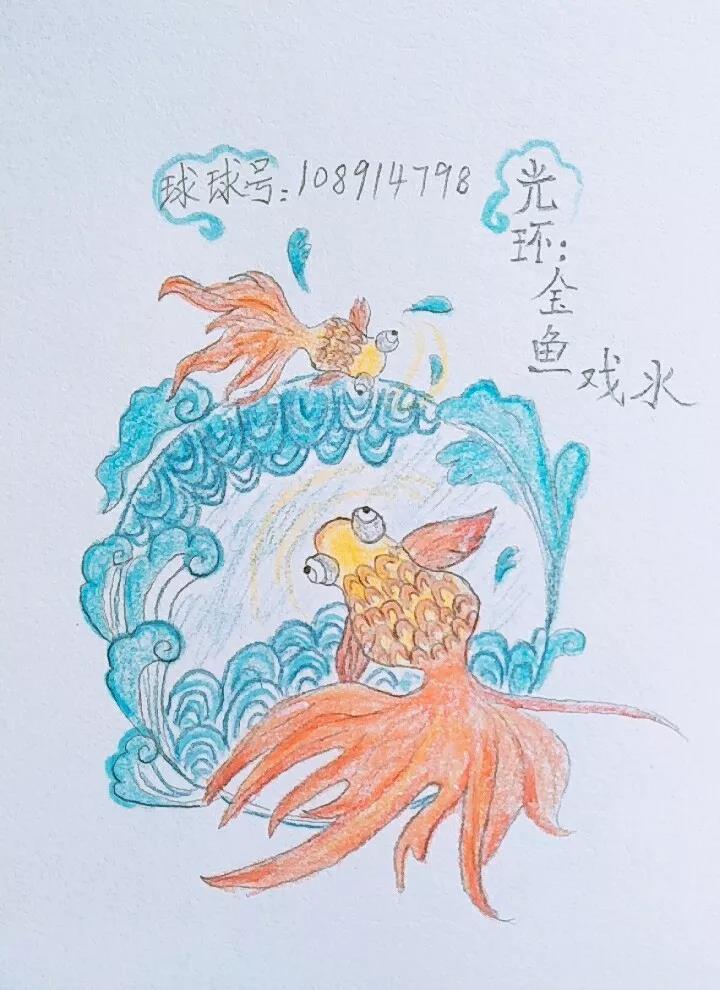 球球号:108914798
光环:金鱼戏水